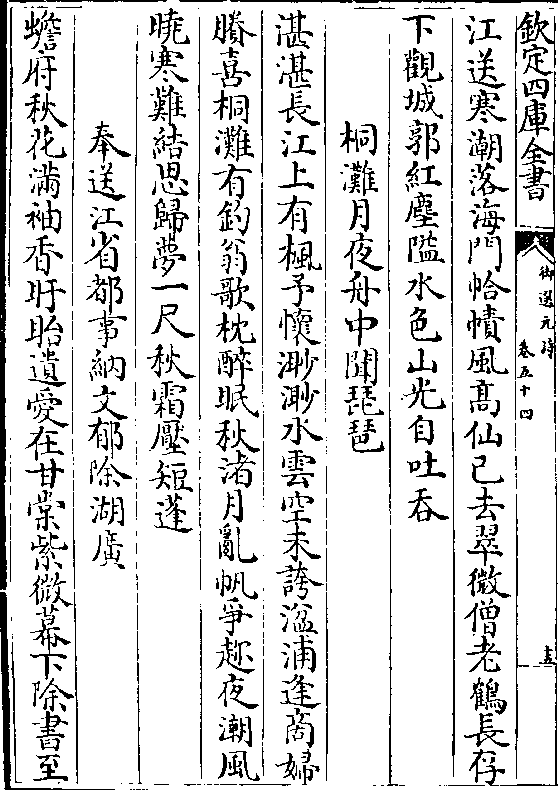 欽定四庫全書
御選元詩
卷五十四
圭
江送寒潮落海門帢幘風髙仙已去翠微僧老鶴長存
下觀城郭紅塵隘水色山光自吐吞
桐灘月夜舟中聞琵琶
湛湛長江上有楓予懷渺渺水雲空未誇湓浦逢商婦
賸喜桐灘有釣翁歌枕醉眠秋渚月亂帆爭趂夜潮風
曉寒難結思歸夢一尺秋霜壓短蓬
奉送江省都事納文郁除湖廣
蟾府秋花滿袖香盱眙遺愛在甘棠紫微幕下除書至